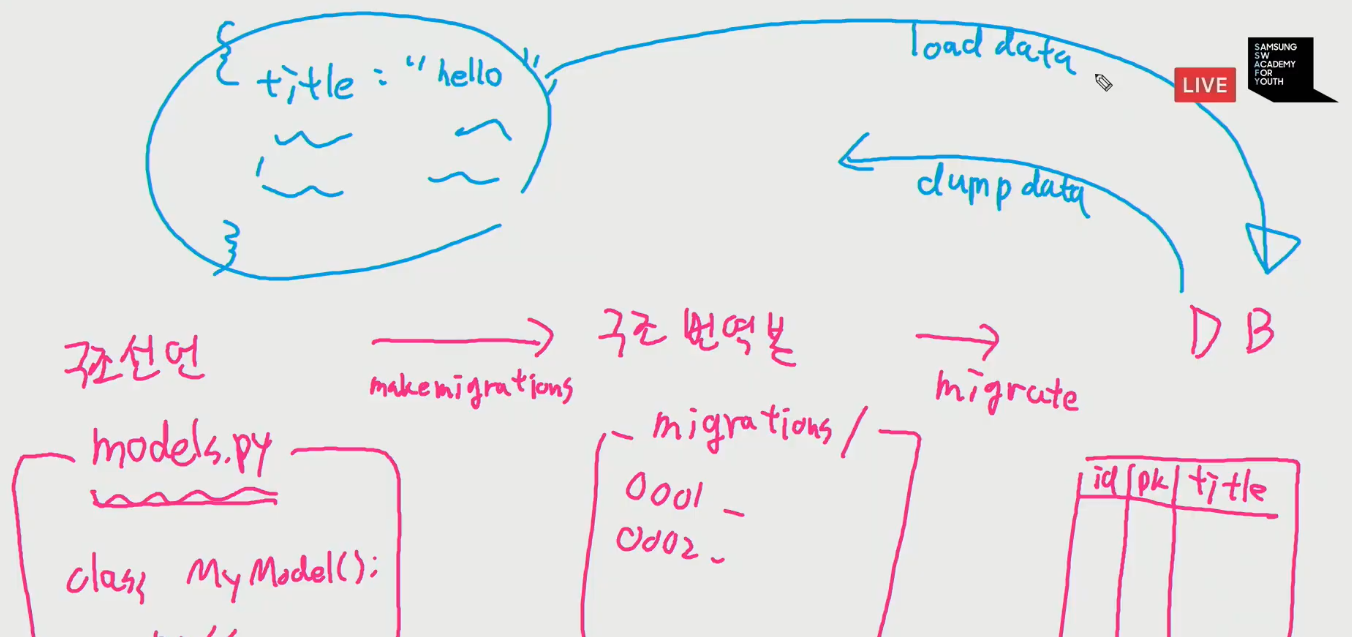 {
title : "hello"
}
load data
dump data
LIVE
SAMSUNG
SW
ACADEMY
FOR
YOUTH
구조선언
makemigrations
구조 번역본
migrate
D B
models.py
class MyModel():
migrations/
0001_
0002_
id pk title